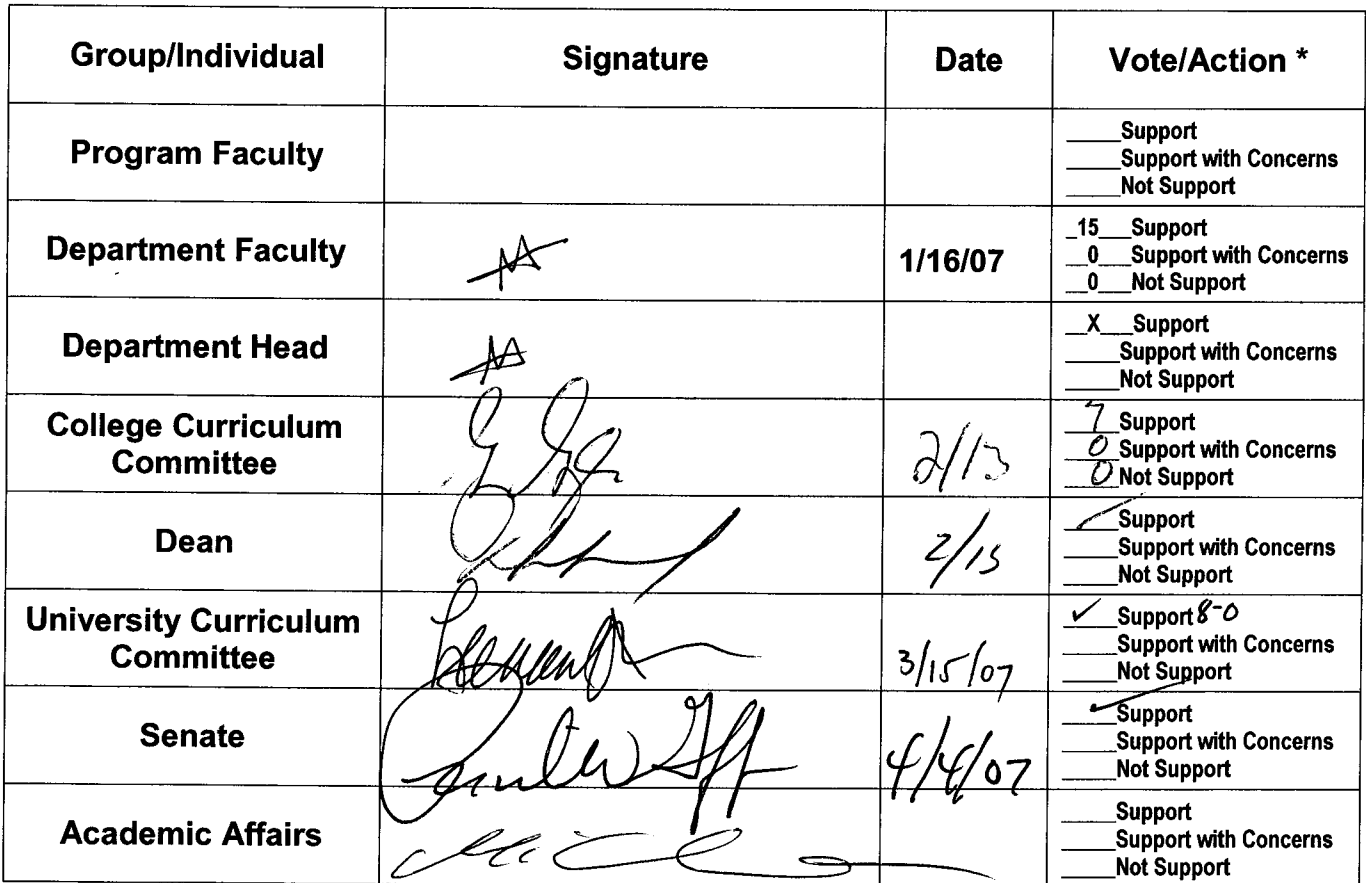 Group/Individual Signature Date Vote/Action *
Program Faculty
____Support
____Support with Concerns
____Not Support
Department Faculty 1/16/07
_15___Support
__0___Support with Concerns
__0___Not Support
Department Head
__X___Support
____Support with Concerns
____Not Support
College Curriculum
Committee
2/13
7 Support
0 Support with Concerns
0 Not Support
Dean
2/15
✓ Support
____Support with Concerns
____Not Support
University Curriculum
Committee
3/15/07
✓ Support 8-0
____Support with Concerns
____Not Support
Senate
4/4/07
✓ Support
____Support with Concerns
____Not Support
Academic Affairs
____Support
____Support with Concerns
____Not Support